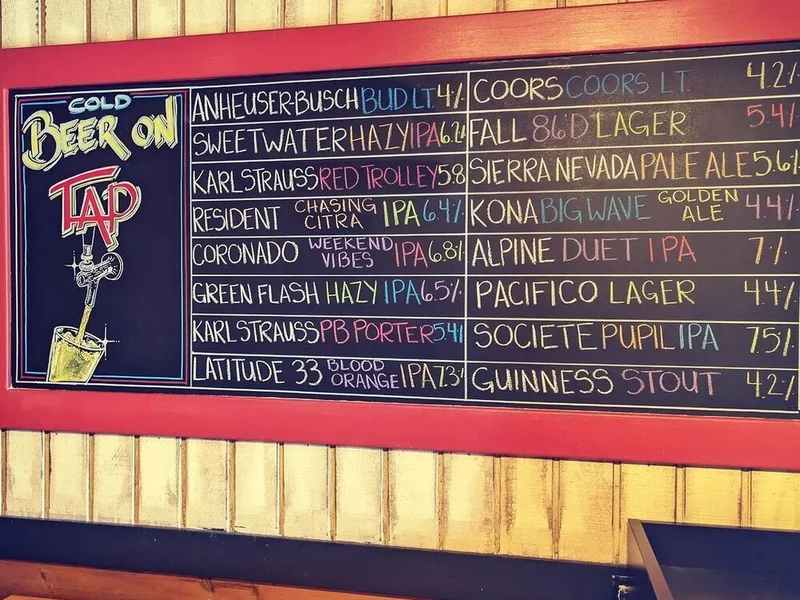 COLD
BEER ON
TAP
ANHEUSER-BUSCH BUD LT 4%
SWEETWATER HAZY IPA 6.2%
KARL STRAUSS RED TROLLEY 5.8
RESIDENT CHASING CITRA IPA 6.4%
CORONADO WEEKEND VIBES IPA 6.8%
GREEN FLASH HAZY IPA 6.5%
KARL STRAUSS PB PORTER 5.4%
LATITUDE 33 BLOOD ORANGE IPA 7.3%
COORS COORS LT 4.2%
FALL 86'D LAGER 5.4%
SIERRA NEVADA PALE ALE 5.6%
KONA BIG WAVE GOLDEN ALE 4.4%
ALPINE DUET IPA 7%
PACIFICO LAGER 4.4%
SOCIETE PUPIL IPA 7.5%
GUINNESS STOUT 4.2%